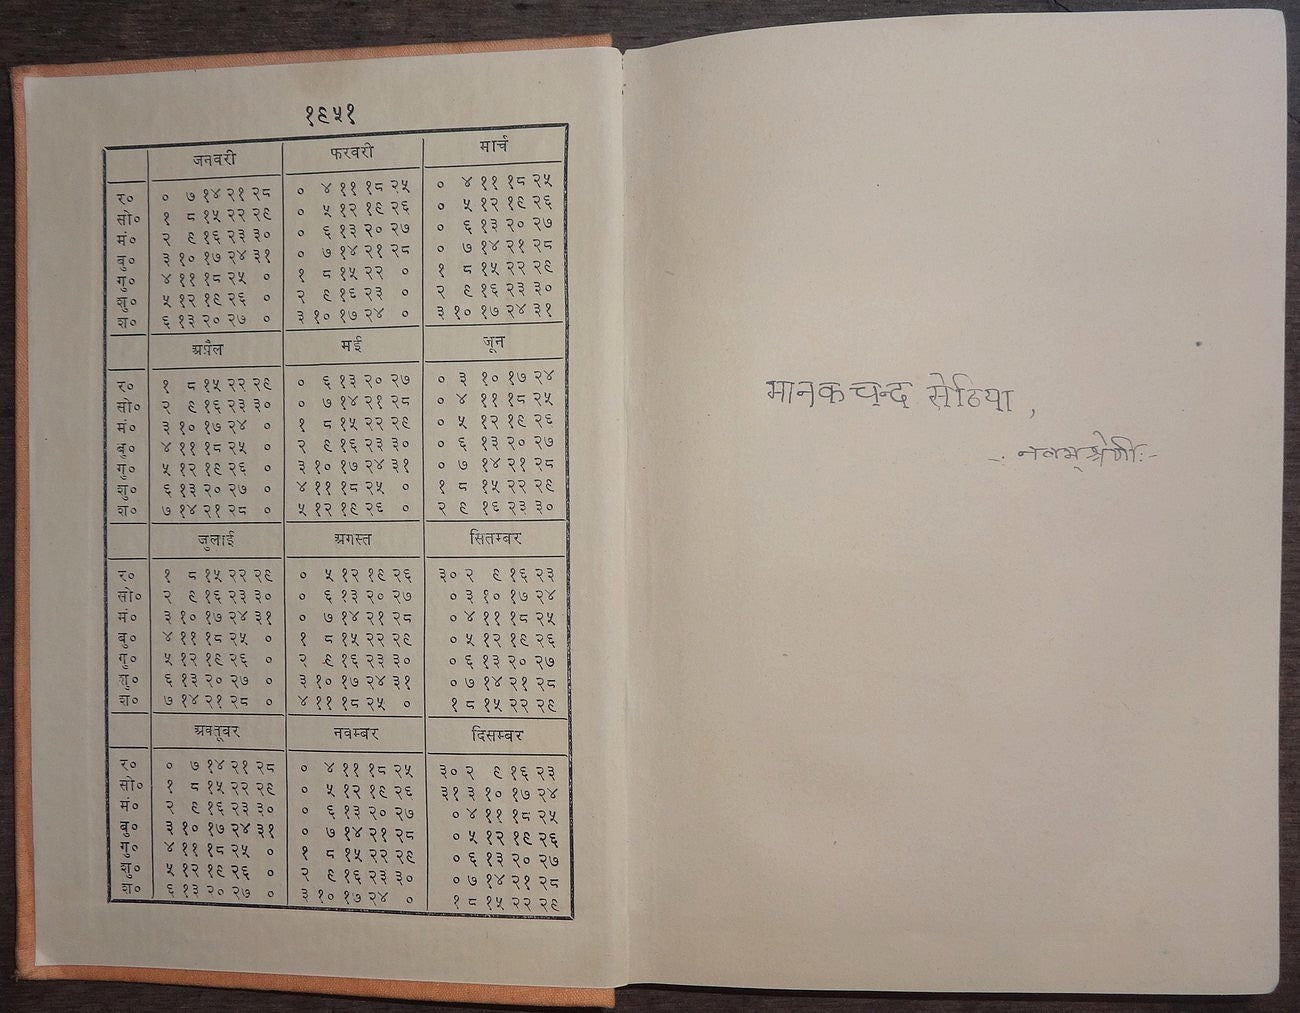 १९५१
जनवरी फरवरी मार्च
र० ० ७ १४ २१ २८ ० ४ ११ १८ २५ ० ४ ११ १८ २५
सो० १ ८ १५ २२ २९ ० ५ १२ १९ २६ ० ५ १२ १९ २६
मं० २ ९ १६ २३ ३० ० ६ १३ २० २७ ० ६ १३ २० २७
बु० ३ १० १७ २४ ३१ ० ७ १४ २१ २८ ० ७ १४ २१ २८
गु० ४ ११ १८ २५ ० १ ८ १५ २२ ० १ ८ १५ २२ २९
शु० ५ १२ १९ २६ ० २ ९ १६ २३ ० २ ९ १६ २३ ३०
श० ६ १३ २० २७ ० ३ १० १७ २४ ० ३ १० १७ २४ ३१
अप्रैल मई जून
र० १ ८ १५ २२ २९ ० ६ १३ २० २७ ० ३ १० १७ २४
सो० २ ९ १६ २३ ३० ० ७ १४ २१ २८ ० ४ ११ १८ २५
मं० ३ १० १७ २४ ० १ ८ १५ २२ २९ ० ५ १२ १९ २६
बु० ४ ११ १८ २५ ० २ ९ १६ २३ ३० ० ६ १३ २० २७
गु० ५ १२ १९ २६ ० ३ १० १७ २४ ३१ ० ७ १४ २१ २८
शु० ६ १३ २० २७ ० ४ ११ १८ २५ ० १ ८ १५ २२ २९
श० ७ १४ २१ २८ ० ५ १२ १९ २६ ० २ ९ १६ २३ ३०
जुलाई अगस्त सितम्बर
र० १ ८ १५ २२ २९ ० ५ १२ १९ २६ ३० २ ९ १६ २३
सो० २ ९ १६ २३ ३० ० ६ १३ २० २७ ० ३ १० १७ २४
मं० ३ १० १७ २४ ३१ ० ७ १४ २१ २८ ० ४ ११ १८ २५
बु० ४ ११ १८ २५ ० १ ८ १५ २२ २९ ० ५ १२ १९ २६
गु० ५ १२ १९ २६ ० २ ९ १६ २३ ३० ० ६ १३ २० २७
शु० ६ १३ २० २७ ० ३ १० १७ २४ ३१ ० ७ १४ २१ २८
श० ७ १४ २१ २८ ० ४ ११ १८ २५ ० १ ८ १५ २२ २९
अक्तूबर नवम्बर दिसम्बर
र० ० ७ १४ २१ २८ ० ४ ११ १८ २५ ३० २ ९ १६ २३
सो० १ ८ १५ २२ २९ ० ५ १२ १९ २६ ३१ ३ १० १७ २४
मं० २ ९ १६ २३ ३० ० ६ १३ २० २७ ० ४ ११ १८ २५
बु० ३ १० १७ २४ ३१ ० ७ १४ २१ २८ ० ५ १२ १९ २६
गु० ४ ११ १८ २५ ० १ ८ १५ २२ २९ ० ६ १३ २० २७
शु० ५ १२ १९ २६ ० २ ९ १६ २३ ३० ० ७ १४ २१ २८
श० ६ १३ २० २७ ० ३ १० १७ २४ ० १ ८ १५ २२ २९
मानक चन्द सेठिया,